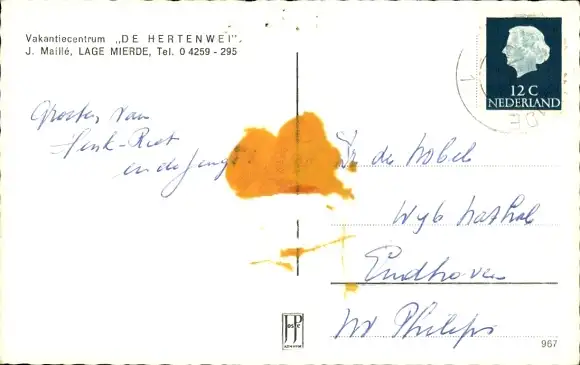 Vakantiecentrum „DE HERTENWEI".
J. Maillé, LAGE MIERDE, Tel. 0 4259 - 295
Groeten van
Henk-Riet
en de
12 C
NEDERLAND
de Nobel
Eindhoven
NV Philips
JosPé
967